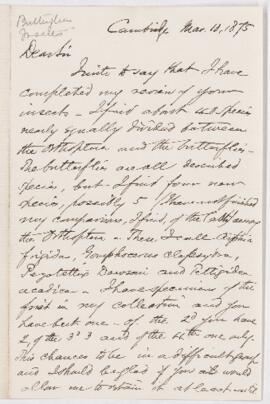 Butterflies
Insects
Cambridge Mar. 12, 1875
Dear Sir
I write to say that I have
completed my review of your
insects. I find about 40 species
nearly equally divided between
the Orthoptera and the butterflies.
The butterflies are all described
species, but I find four new
species, possibly 5 (I have not finished
my comparisons, I find, of the
the Orthoptera. These I call
frigidus, Gomphocerus clepsydra,
Pezotettix Dawsoni and Tettigidea
acadica. I have specimens of the
first in my collection and you
have but one - of the 2d you have
2, of the 3d 3 and of the 4th one only.
This chances to be in a difficult group
and I should be glad if you
allow me to retain it at least until